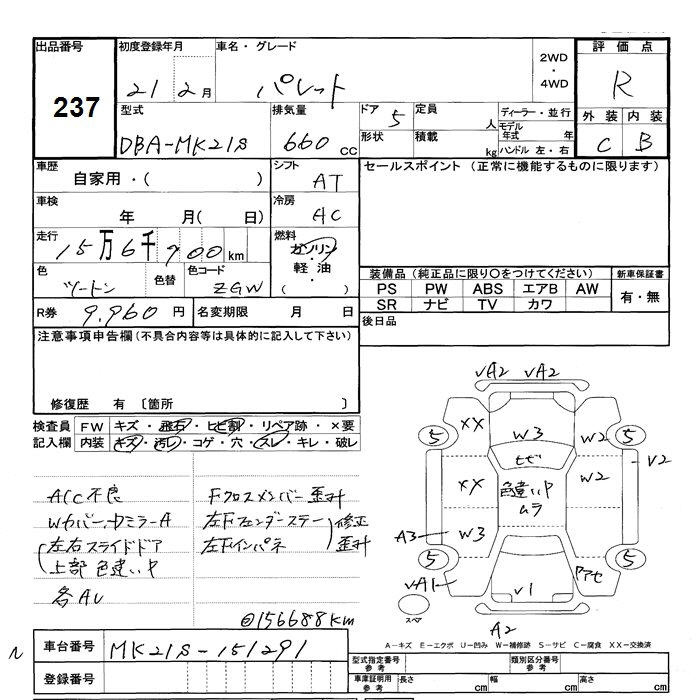 出品番号 初度登録年月 車名・グレード 2WD・4WD 評価点
237 21 2月 パレット R
型式 排気量 ドア 定員 ディーラー・並行 外装 内装
DBA-MK21S 660 cc 5 人 モデル年式 年 C B
形状 積載 kg ハンドル 左・右
車歴 シフト セールスポイント (正常に機能するものに限ります)
自家用・( ) AT
車検 冷房
年 月( 日) AC
走行 燃料
15万6千700km ガソリン・軽油
色 色替 色コード ( ) 装備品(純正品に限り○をつけてください) 新車保証書
ツートン ZGW PS PW ABS エアB AW 有・無
SR ナビ TV カワ
R券 9,960円 名変期限 月 日 後日品
注意事項申告欄(不具合内容等は具体的に記入して下さい)
修復歴 有 〔箇所 〕
検査員 FW キズ・飛石・ヒビ割・リペア跡・×要
記入欄 内装 キズ・汚れ・コゲ・穴・スレ・キレ・破レ
A/C不良 Fクロスメンバー歪み
Wカバー、ドミラーA 左Fフェンダーステー 修正
左右スライドドア 左Fインパネ 歪み
上部色違い中
各AU
@156688km
√A2 √A2
XX W3 W2
5 ヒビ 5
V2
XX 色違い中 W2
ムラ
A3 W3
5 5
√A1 V1 アアセ
スペア A2
A-キズ E-エクボ U-凹み W-補修跡 S-サビ C-腐食 XX-交換済
N 車台番号 MK21S-151291 型式指定番号 参考 類別区分番号 参考
登録番号 車庫証明用 参考 長さ cm 幅 cm 高さ cm